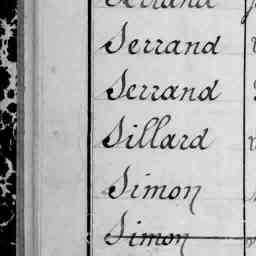 Serrand
Serrand
Serrand
Sillard
Simon
Simon